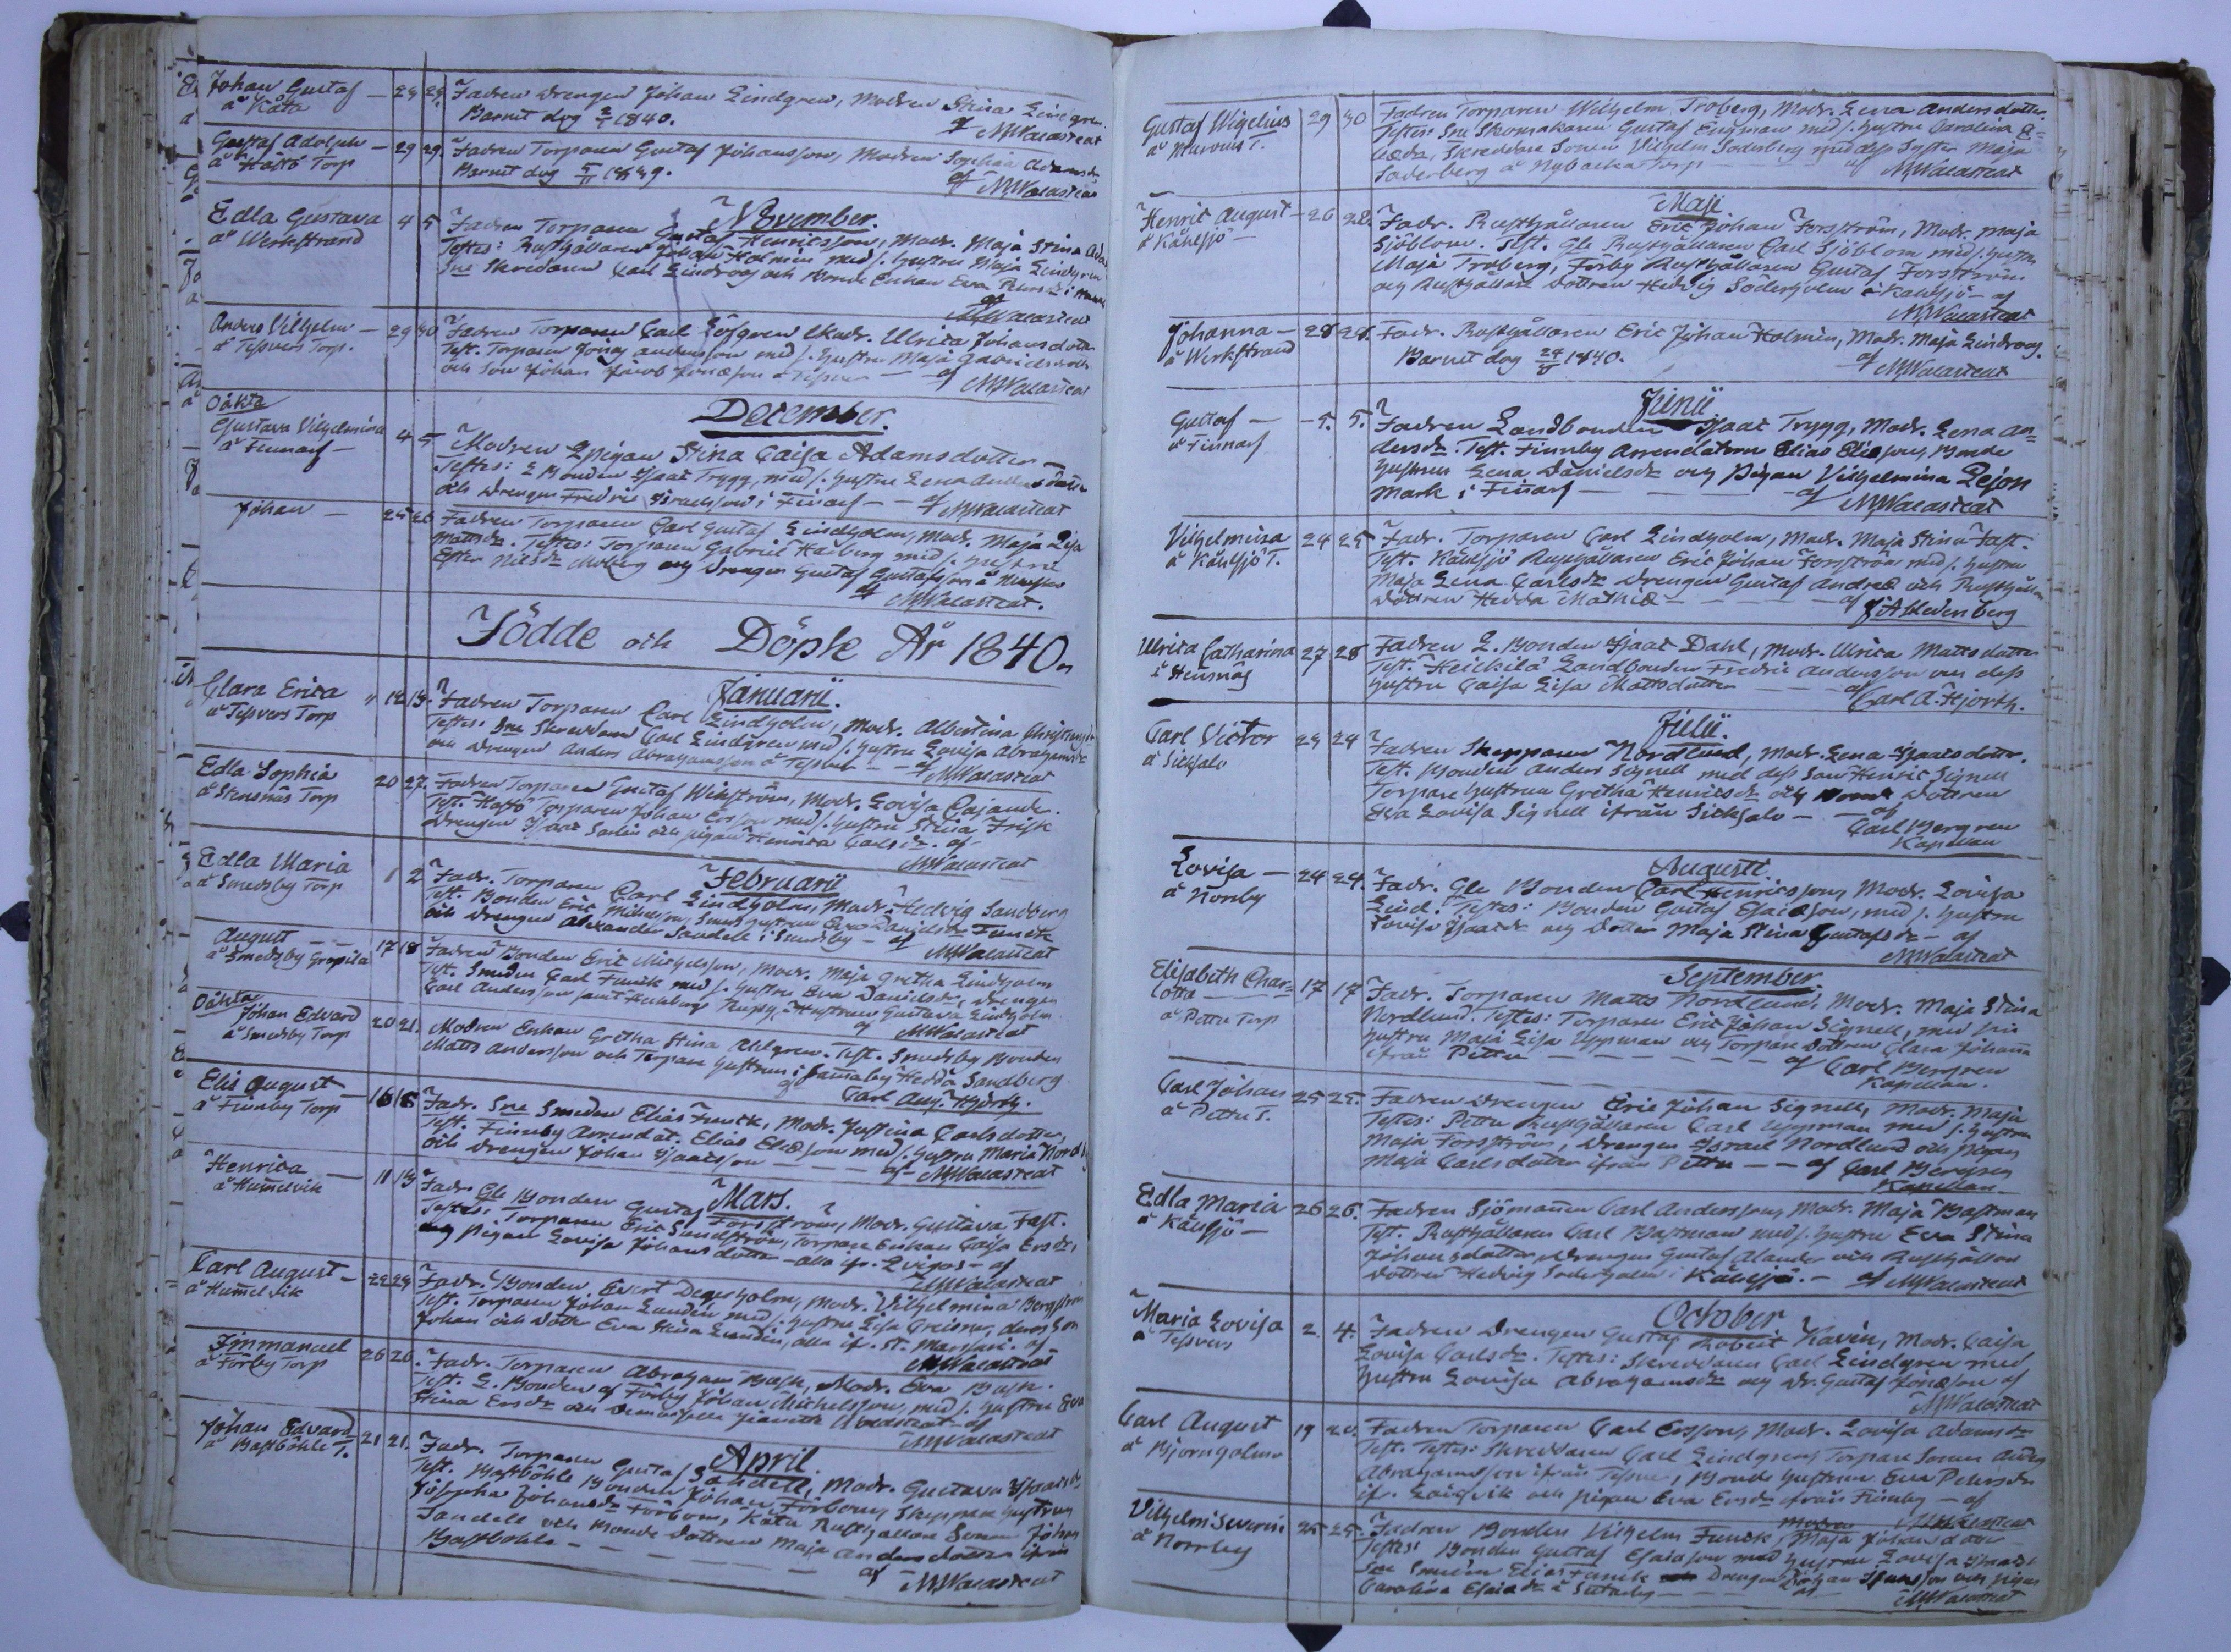 Johan Gustaf — 29 29. Fadren Drengen Johan Lindgren, Modren Stina Lindgren.
å Kåta Barnet dog 2/1 1840. af MWalasteat
Gustaf Adolph — 29 29. Fadren Torparen Gustaf Johansson, Modren Sophia Adamsdr
å Hastö Torp Barnet dog 5/11 1839. af MWalasteat
November.
Edla Gustava 4 5 Fadren Torparen Gustaf Henricsson, Modr. Maja Stina
å Werkstrand Testes: Rusthållaren Johan Holmen med s. hustru Maja Lindgren
Sne Skredaren Carl Lindroos och Bonde Enkan Eva
af MWalasteat
Anders Vilhelm — 29 30 Fadren Torparen Carl Löfgren Modr. Ulrica Johansdotter
å Tessvers Torp. Test. Torparen Jonas Andersson med s. hustru Maja Gabrielsdotter
och Son Johan Jacob Jonsson å Tesver — af MWalasteat
December.
Oäkta
Gustava Vilhelmina 4 5 Modren Pigan Stina Caisa Adamsdotter —
å Finnarf — Testes: L Bonden Isaac Trygg, med s. hustru Lena Andersdotter
och Drengen Fredric Israelsson i Finarf — — af MWalasteat
Johan — 25 26 Fadren Torparen Carl Gustaf Lindholm, Modr. Maja Lisa
Mattsdr. Testes: Torparen Gabriel Kaiberg med s. hustru
Ester Nilsdr Moberg och Drengen Gustaf Gustafsson å
af MWalasteat.
Födde och Döpte År 1840.
Januarii.
Clara Erica 12 13. Fadren Torparen Carl Lindholm, Modr. Albertina
å Tessvers Torp Testes: Sne Skreddaren Carl Lindgren med s. hustru Lovisa Abrahamsdr
och Drengen Anders Abrahamsson å Tesver — — af MWalasteat
Edla Sophia 20 27. Fadren Torparen Gustaf Wikström, Modr. Lovisa Cajander.
å Stensnäs Torp Test. Hastö Torparen Johan Ersson med s. hustru Stina Frisk
Drengen Isaac Sarlin och pigan Henrica Carlsdr. af
MWalasteat
Februarii
Edla Maria 1 2 Fadr. Torparen Carl Lindholm, Modr. Hedvig Sandberg
å Smedsby Torp Test. Bonden Eric Michelsson, Smeds hustrun Eva Danielsdr Funck
och Drengen Alexander Sandell i Smedsby — af MWalasteat
August 17 18 Fadren Bonden Eric Michelsson, Modr. Maja Gretha Lindholm
å Smedsby Gropila Test. Smeden Carl Funck med s. hustru Eva Danielsdr, Drengen
Carl Andersson samt Hustrun Gustava Lindholm
af MWalasteat
Oäkta
Johan Edvard 20 21. Modren Enkan Gretha Stina Ahlgren. Test. Smedsby Bonden
å Smedsby Torp Matts Andersson och Torpare hustrun i Bamaby Hedda Sandberg
af Carl Aug. Hjorth.
Elis August — 16 18 Fadr. Sne Smeden Elias Funck, Modr. Justina Carlsdotter,
å Finnby Torp Test. Finnby Arrendat. Elias Eliasson med s. hustru Maria Nord
och Drengen Johan Isaacsson — — — af MWalasteat
Mars.
Henrica — 11 13 Fadr. Gle Bonden Gustaf Forsström, Modr. Gustava Fast.
å Hummelvik Testes: Torparen Eric Sundström, Torpare Enkan Caisa Ersdr,
och pigan Lovisa Johansdotter — alla ifr. Lvigos — af
MWalasteat
Carl August — 22 24 Fadr. Bonden Evert Degerholm, Modr. Vilhelmina Bergström
å Hummelvik Test. Torparen Johan Lundin med s. hustru Lisa Greisner, deras Son
Johan och Dotter Eva Stina Lundin, alla ifr. St. Marskär. af
MWalasteat
Immanuel 26 26. Fadr. Torparen Abraham Bask, Modr. Eva Bask.
å Förby Torp Test. L. Bonden af Förby Johan Michelsson, med s. hustru Eva
Stina Ersdr och Demoiselle Jeanette Walasteat af
MWalasteat
April.
Johan Edvard 21 21. Fadr. Torparen Gustaf Sandell, Modr. Gustava Isaacsdr.
å Bastböhle T. Test. Bastböhle Bonden Johan Förbom, Skeppare hustrun
Josepha Johansdr Förbom, Kåta Rusthållare Sonen Johan
Sandell och Bonde Dottren Maja Andersdotter ifrån
Bastböhle — — — — — af MWalasteat
Gustaf Wigelius 29 30 Fadren Torparen Wilhelm Troberg, Modr. Lena Andersdotter.
å Marvius T. Testes: Sne Skomakaren Gustaf Engman med s. hustru Carolina
Skreddare Sonen Vilhelm Söderberg med dess Syster Maja
Söderberg å Nybacka Torp — af MWalasteat
Maji
Henric August — 26 28. Fadr. Rusthållaren Eric Johan Forsström, Modr. Maja
å Kählsjö — Sjöblom. Test. Gle Rusthållaren Carl Sjöblom med s. hustru
Maja Troberg, Förby Rusthållaren Gustaf Forsström
och Rusthållare Dottren Hedvig Söderholm i Kählsjö — af
MWalasteat
Johanna — 28 28. Fadr. Rusthållaren Eric Johan Holmén, Modr. Maja Lindroos.
å Werkstrand Barnet dog 29/5 1840. af MWalasteat
Junii
Gustaf — — 5. 5. Fadren Landbonden Isaac Trygg, Modr. Lena An=
å Finnarf dersdr. Test. Finnby Arrendatorn Elias Eliasson, Bonde
hustrun Lena Danielsdr och Pigan Vilhelmina Lejon
mark i Finarf — — — — af MWalasteat
Vilhelmina 24 25 Fadr. Torparen Carl Lindholm, Modr. Maja Stina Fast.
å Kählsjö T. Test. Kählsjö Rusthållaren Eric Johan Forsström med s. hustru
Maja Lena Carlsdr Drengen Gustaf Andreæ och Rusthållare
Dottren Hedda Mathiæ — — — — — af
Ulrica Catharina 27 28 Fadren L. Bonden Isaac Dahl, Modr. Ulrica Mattsdotter
å Hensnäs Test. Heickilä Landbonden Fredric Andersson och dess
hustru Caisa Lisa Mattsdotter — — — af
Carl A. Hjorth.
Julii.
Carl Victor 23 24 Fadren Skepparen Nordlund, Modr. Lena Isaacsdotter.
å Sicksalo Test. Bonden Anders Signell med dess Son Henric Signell
Torpare hustrun Gretha Henricsdr och Bonde Dottren
Eva Lovisa Signell ifrån Sicksalo — — af
Carl Bergren
Kapellan
Augusti.
Lovisa — 24 24. Fadr. Gle Bonden Carl Henricsson, Modr. Lovisa
å Norrby Lind. Testes: Bonden Gustaf Esaiæson, med s. hustru
Lovisa Isaacsdr och Dotter Maja Stina Gustafsdr — af
MWalasteat
September.
Elisabeth Char= 17 17 Fadr. Torparen Matts Nordlund, Modr. Maja Stina
lotta — Nordlund. Testes: Torparen Eric Johan Signell, med sin
å Pettu Torp hustru Maja Lisa Uppman och Torpare Dottren Clara Johanna
ifrån Pettu — — — — — — af Carl Bergren
Kapellan.
Carl Johan 25 25. Fadren Drengen Eric Johan Signell, Modr. Maja
å Pettu T. Testes: Pettu Rusthållaren Carl Uppman med s. hustru
Maja Forsström, Drengen Israel Nordlund och pigan
Maja Carlsdotter ifrån Pettu — — af Carl Bergren
Kapellan —
Edla Maria 26 26. Fadren Sjömannen Carl Andersson, Modr. Maja Bastman
å Kählsjö — Test. Rusthållaren Carl Bastman med s. hustru Eva Stina
Johansdotter, Drengen Gustaf Alander och Rusthållare
Dottren Hedvig Söderholm i Kählsjö. — af MWalasteat
October
Maria Lovisa 2. 4. Fadren Drengen Gustaf Robert Kavén, Modr. Caisa
å Tessvers Lovisa Carlsdr. Testes: Skreddaren Carl Lindgren med
hustru Lovisa Abrahamsdr och Dr. Gustaf Jonsson af
MWalasteat
Carl August 19 20. Fadren Torparen Carl Ersson, Modr. Lovisa Adamsdr
å Bjornholm Test. Testes: Skreddaren Carl Lindgren, Torpare Sonen Anders
Abrahamsson ifrån Tesver, Bonde hustrun Eva Petersdr
ifr. Laisvik och pigan Eva Ersdr ifrån Finnby — af
MWalasteat
Vilhelm Severin 25 25. Fadren Bonden Vilhelm Funck, Modren Maja Johansdotter
å Norrby Testes: Bonden Gustaf Esaiason med hustru Lovisa Isaacsdr
Sne Smeden Elias Funck Drengen Johan Isaacsson och pigan
Carolina Esaiædr i — — af MWalasteat